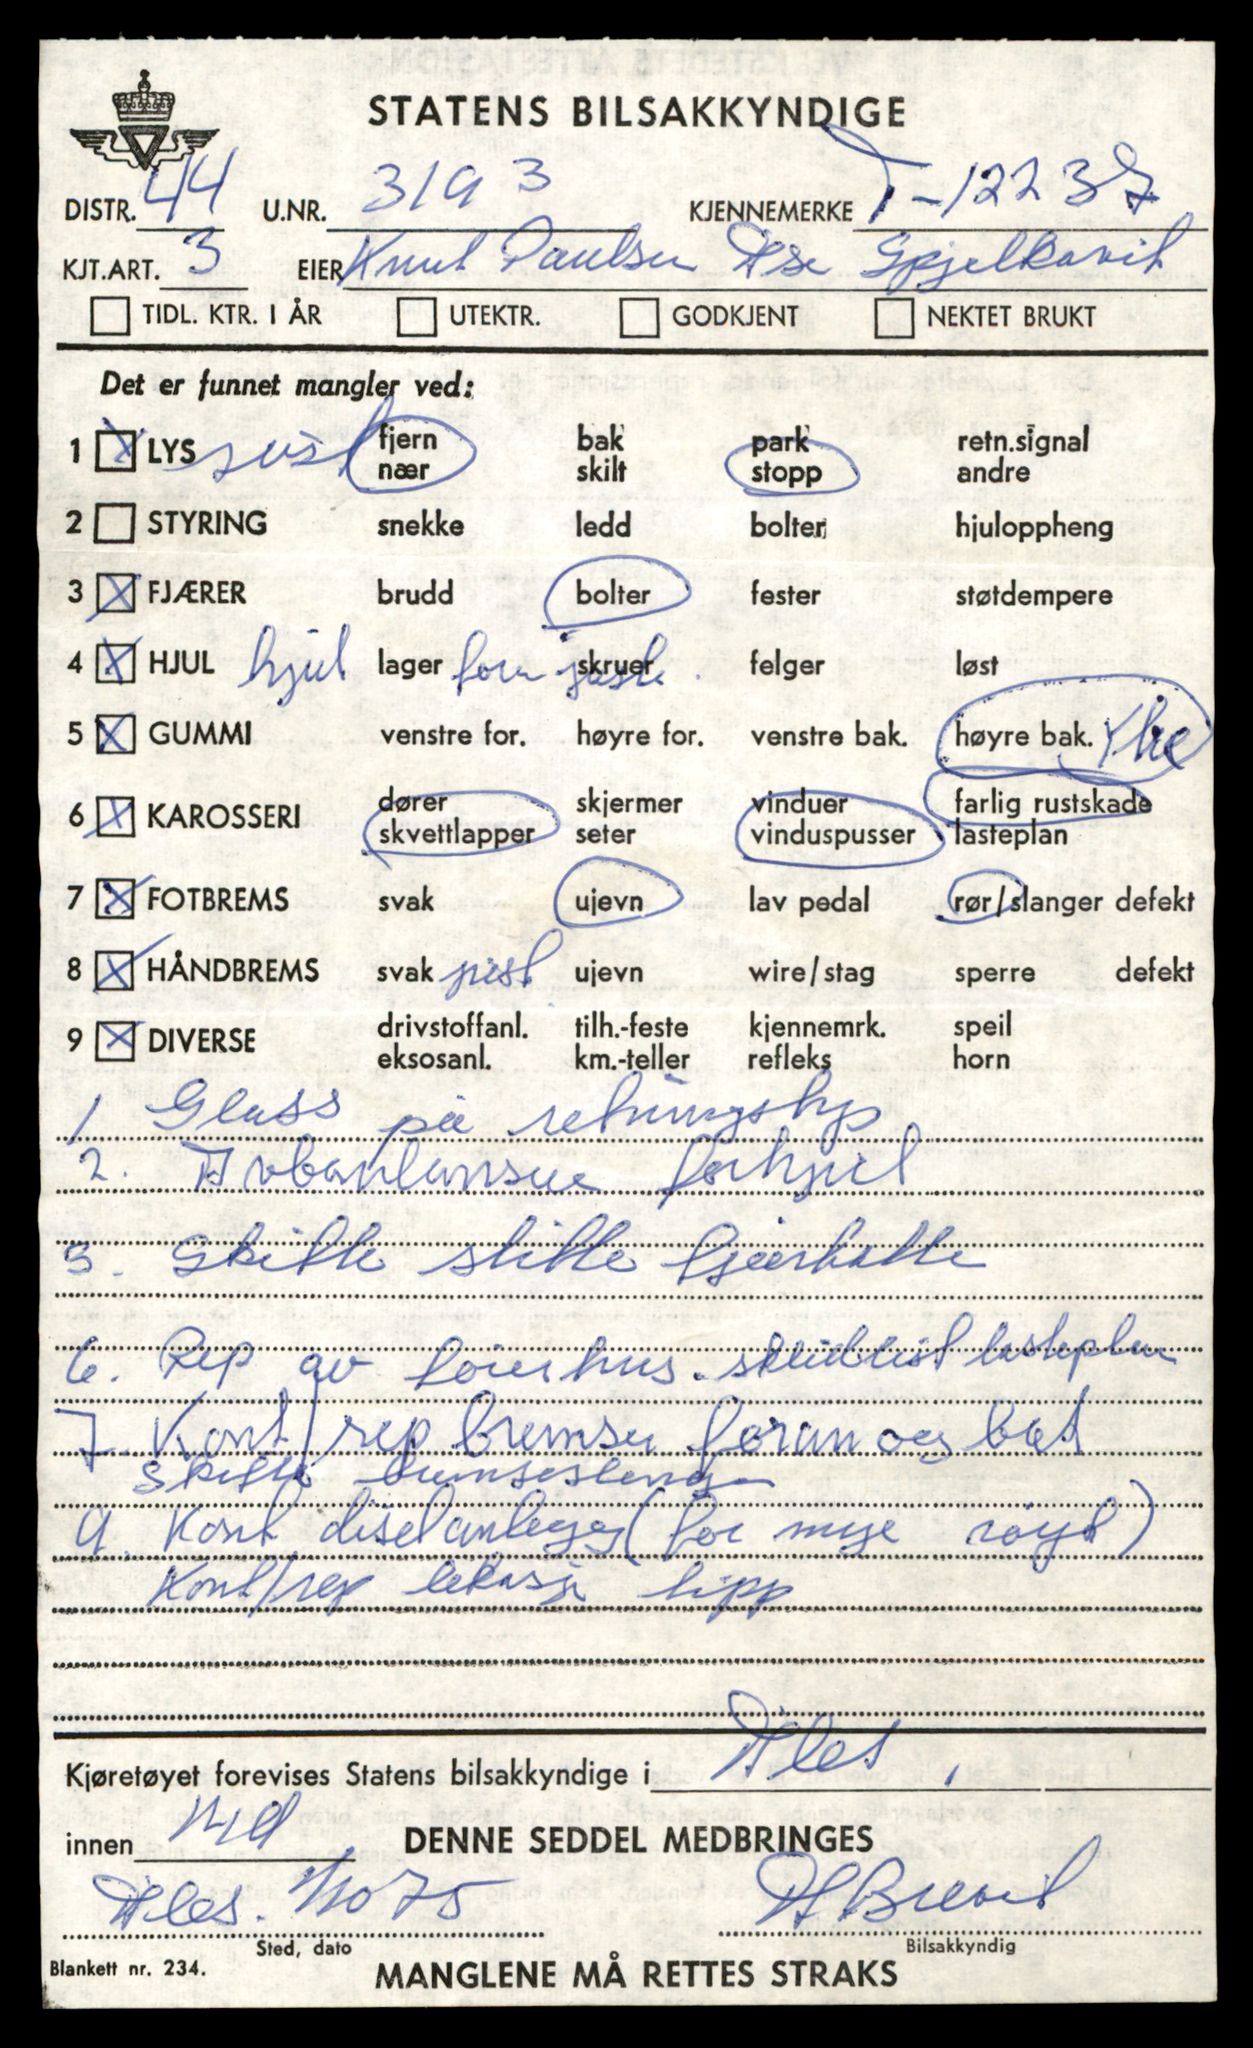 STATENS BILSAKKYNDIGE
DISTR. 44 U.NR. 3193 KJENNEMERKE T-12237
KJT.ART. 3 EIER Knut Paulsen Åse Spjelkavik
TIDL. KTR. I ÅR UTEKTR. GODKJENT NEKTET BRUKT
Det er funnet mangler ved:
1 X LYS just fjern bak park retn.signal
nær skilt stopp andre
2 STYRING snekke ledd bolter hjuloppheng
3 X FJÆRER brudd bolter fester støtdempere
4 X HJUL hjul lager foran skruer juste felger løst
5 X GUMMI venstre for. høyre for. venstre bak. høyre bak.
6 X KAROSSERI dører skjermer vinduer farlig rustskade
skvettlapper seter vinduspusser lasteplan
7 X FOTBREMS svak ujevn lav pedal rør/slanger defekt
8 X HÅNDBREMS svak just ujevn wire/stag sperre defekt
9 X DIVERSE drivstoffanl. tilh.-feste kjennemrk. speil
eksosanl. km.-teller refleks horn
1 Glass på retningslys
2. forhjul
3. Skifte slitte
6. Rep av førerhus. lasteplan
7. Kont/rep bremser foran og bak
Skifte bremseslange
9. Kont diselanlegg (for mye røyk)
Kont/rep lekasje tipp
Kjøretøyet forevises Statens bilsakkyndige i Ales,
innen DENNE SEDDEL MEDBRINGES
Ales. 1/10 75
Sted, dato Bilsakkyndig
Blankett nr. 234. MANGLENE MÅ RETTES STRAKS